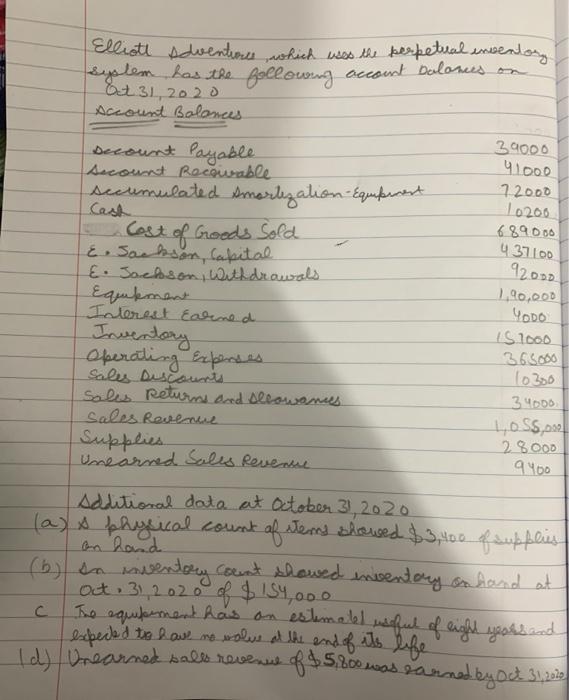 Elliott Adventures, which uses the perpetual inventory
system, has the following account balances on
Oct 31, 2020
Account Balances
Account Payable 39000
Account Receivable 41000
Accumulated Amortization-Equipment 72000
Cash 10200
Cost of Goods Sold 689000
E. Jackson, Capital 437100
E. Jackson, Withdrawals 92000
Equipment 1,90,000
Interest Earned 4000
Inventory 157000
Operating Expenses 365000
Sales Discounts 10300
Sales Returns and Allowances 34000
Sales Revenue 1,055,000
Supplies 28000
Unearned Sales Revenue 9400
Additional data at October 31, 2020
(a) A physical count of items showed $3,400 of supplies
on hand
(b) An inventory count showed inventory on hand at
Oct. 31, 2020 of $154,000
C The equipment has an estimated useful of eight years and
expected to have no value at the end of its life
(d) Unearned sales revenue of $5,800 was earned by Oct 31, 2020